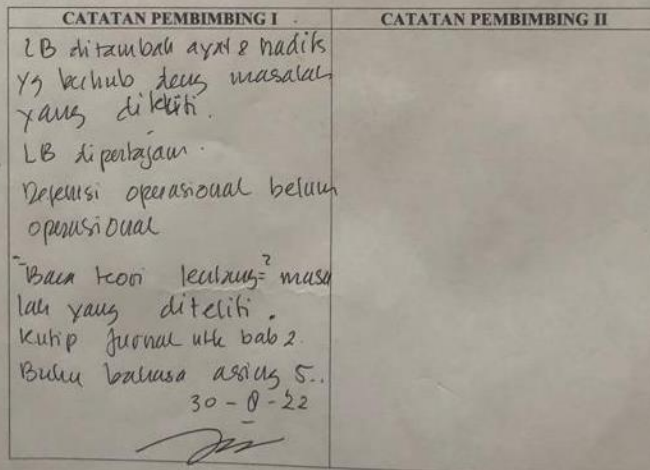 CATATAN PEMBIMBING I
CATATAN PEMBIMBING II
LB ditambah ayat & hadits
yg berhub deng masalah
yang diteliti.
LB dipertajam.
Defenisi operasional belum
operasional
Baca teori tentang² masa
lah yang diteliti.
Kutip Jurnal utk bab 2.
Buku bahasa asing 5..
30-8-22